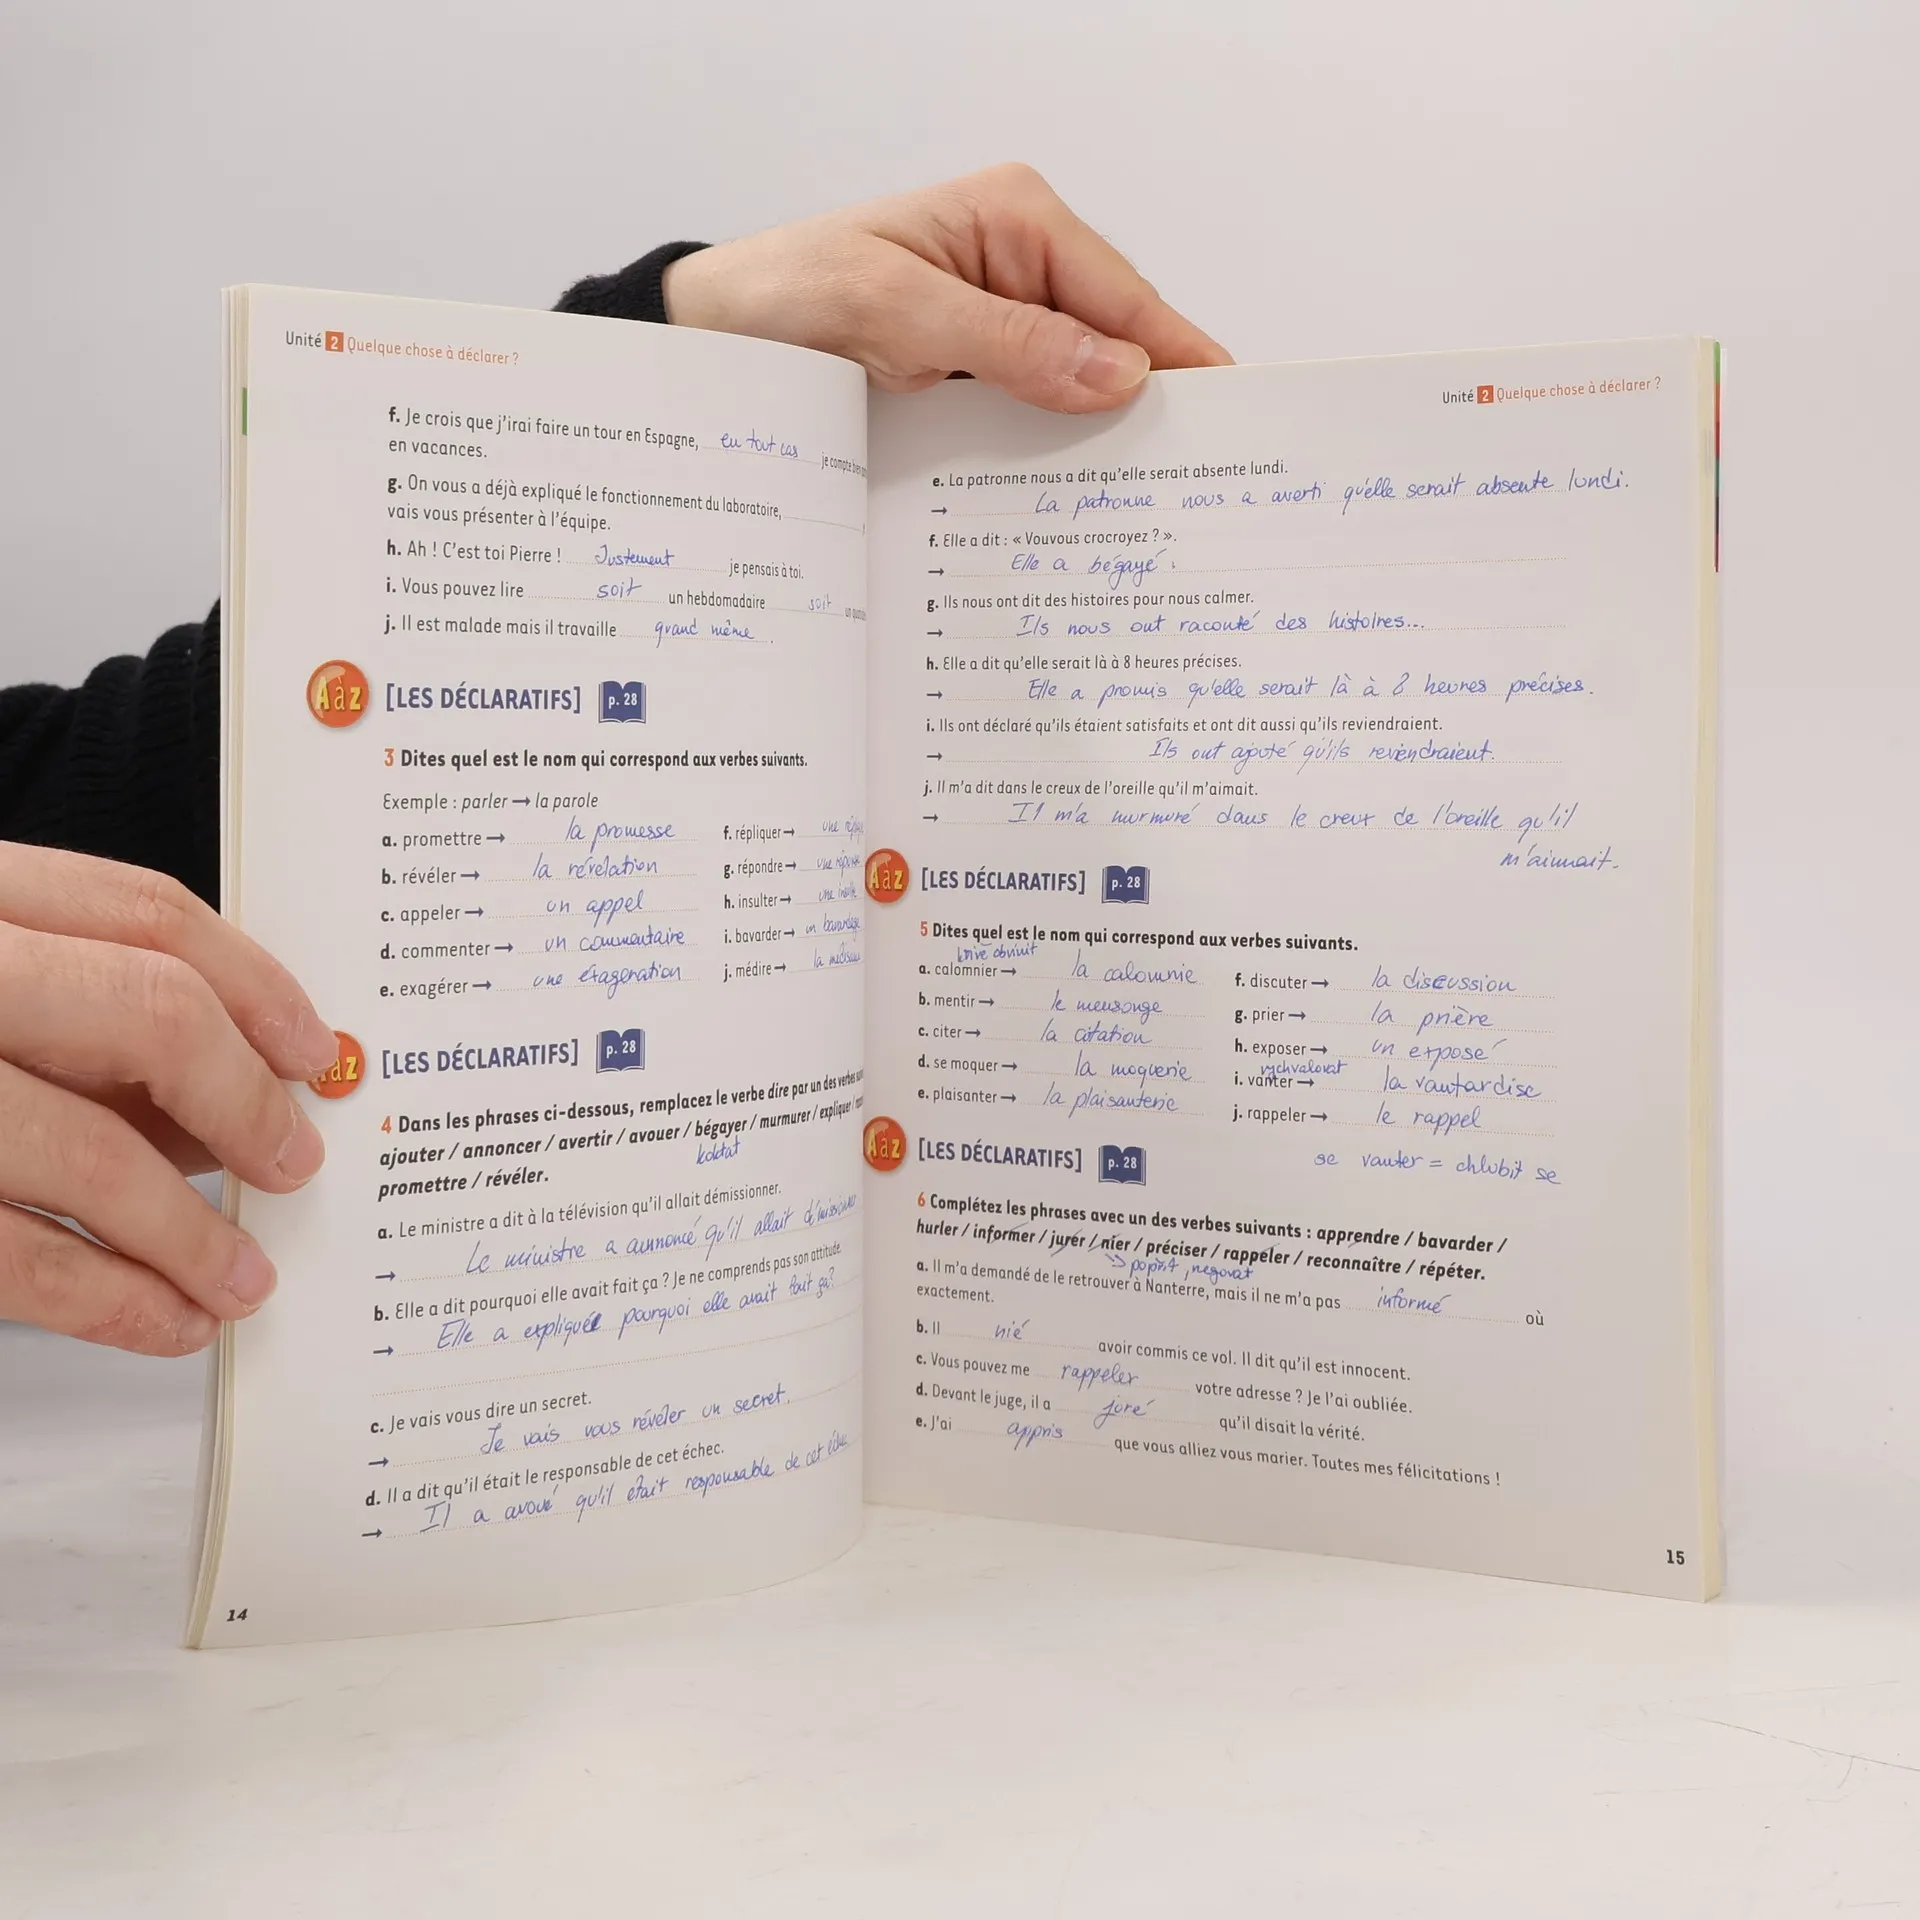 Unité 2 Quelque chose à déclarer ?
f. Je crois que j'irai faire un tour en Espagne, en tout cas je compte bien
en vacances.
g. On vous a déjà expliqué le fonctionnement du laboratoire,
vais vous présenter à l'équipe.
h. Ah ! C'est toi Pierre ! Justement je pensais à toi.
i. Vous pouvez lire soit un hebdomadaire soit un
j. Il est malade mais il travaille quand même.
A à Z [LES DÉCLARATIFS] p. 28
3 Dites quel est le nom qui correspond aux verbes suivants.
Exemple : parler → la parole
a. promettre → la promesse
b. révéler → la révélation
c. appeler → un appel
d. commenter → un commentaire
e. exagérer → une éxageration
f. répliquer → une
g. répondre → une réponse
h. insulter → une
i. bavarder → un bavardage
j. médire → la
à Z [LES DÉCLARATIFS] p. 28
4 Dans les phrases ci-dessous, remplacez le verbe dire par un des verbes
ajouter / annoncer / avertir / avouer / bégayer / murmurer / expliquer /
koktat
promettre / révéler.
a. Le ministre a dit à la télévision qu'il allait démissionner.
→ Le ministre a annoncé qu'il allait
b. Elle a dit pourquoi elle avait fait ça ? Je ne comprends pas son attitude.
→ Elle a expliqué pourquoi elle avait fait ça?
c. Je vais vous dire un secret.
→ Je vais vous révéler un secret.
d. Il a dit qu'il était le responsable de cet échec.
→ Il a avoué qu'il était responsable de cet
14
Unité 2 Quelque chose à déclarer ?
e. La patronne nous a dit qu'elle serait absente lundi.
→ La patronne nous a averti qu'elle serait absente lundi.
f. Elle a dit : « Vouvous crocroyez ? ».
→ Elle a bégayé :
g. Ils nous ont dit des histoires pour nous calmer.
→ Ils nous ont raconté des histoires...
h. Elle a dit qu'elle serait là à 8 heures précises.
→ Elle a promis qu'elle serait là à 8 heures précises.
i. Ils ont déclaré qu'ils étaient satisfaits et ont dit aussi qu'ils reviendraient.
→ Ils ont ajouté qu'ils reviendraient.
j. Il m'a dit dans le creux de l'oreille qu'il m'aimait.
→ Il m'a murmuré dans le creux de l'oreille qu'il
m'aimait.
A à Z [LES DÉCLARATIFS] p. 28
5 Dites quel est le nom qui correspond aux verbes suivants.
křivě obvinit
a. calomnier → la calomnie
b. mentir → le mensonge
c. citer → la citation
d. se moquer → la moquerie
e. plaisanter → la plaisanterie
f. discuter → la discussion
g. prier → la prière
h. exposer → un exposé
vychvalovat
i. vanter → la vantardise
j. rappeler → le rappel
se vanter = chlubit se
A à Z [LES DÉCLARATIFS] p. 28
6 Complétez les phrases avec un des verbes suivants : apprendre / bavarder /
hurler / informer / jurer / nier / préciser / rappeler / reconnaître / répéter.
popřít, negovat
a. Il m'a demandé de le retrouver à Nanterre, mais il ne m'a pas informé où
exactement.
b. Il nié avoir commis ce vol. Il dit qu'il est innocent.
c. Vous pouvez me rappeler votre adresse ? Je l'ai oubliée.
d. Devant le juge, il a juré qu'il disait la vérité.
e. J'ai appris que vous alliez vous marier. Toutes mes félicitations !
15